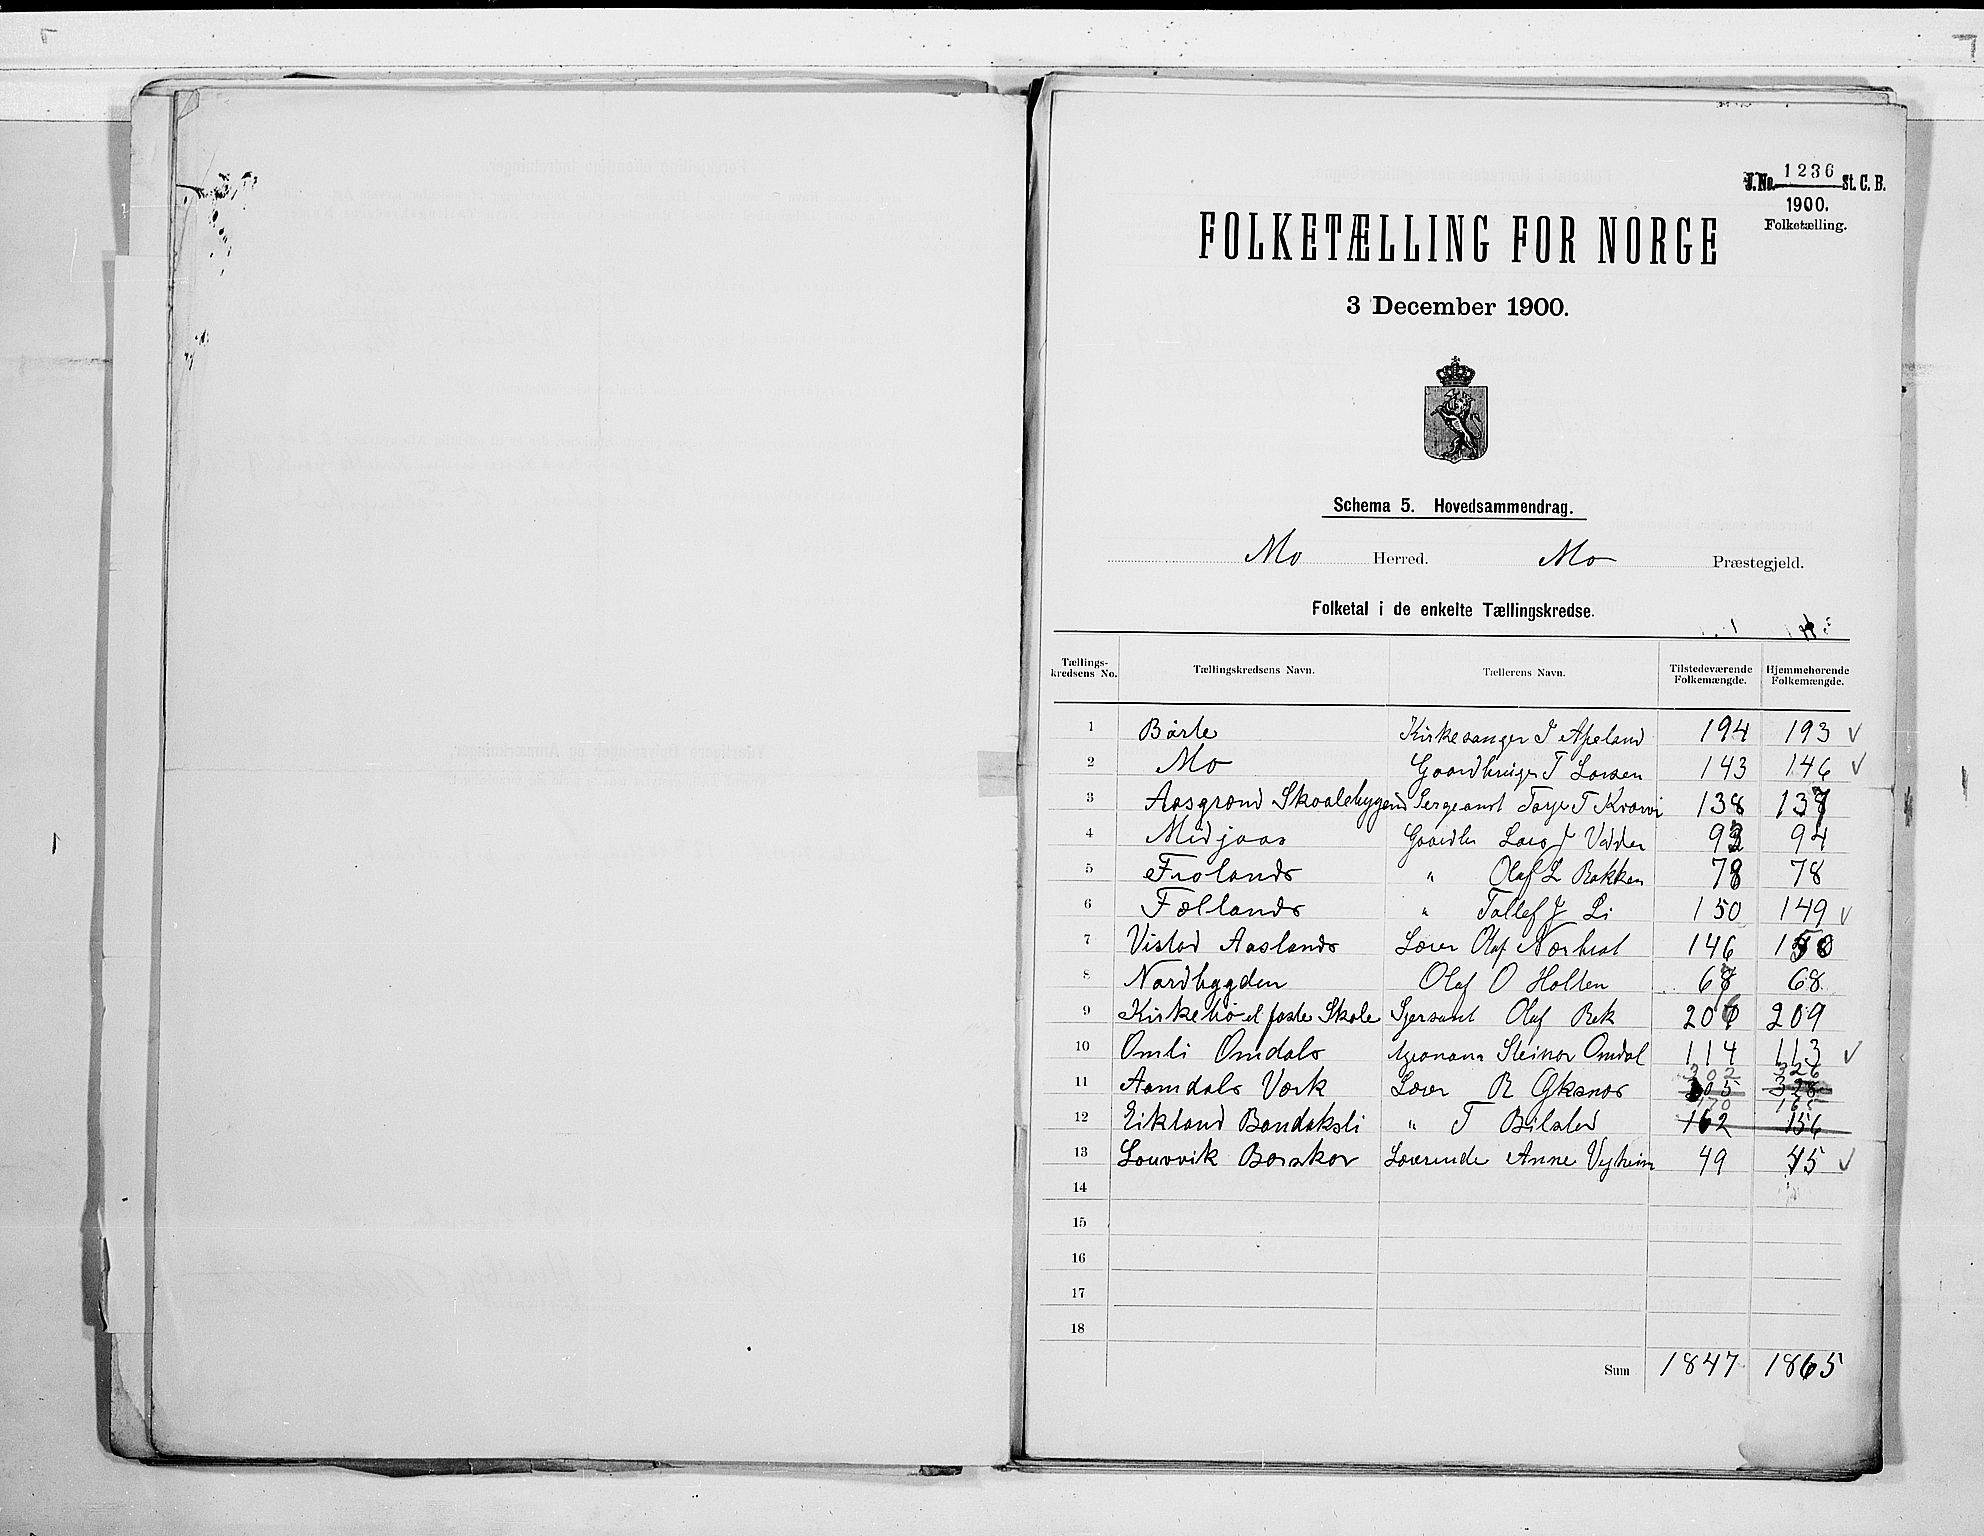 J. No. 1236 St. C. B.
1900.
Folketælling.
FOLKETÆLLING FOR NORGE
3 December 1900.
Schema 5. Hovedsammendrag.
Mo Herred. Mo Præstegjeld.
Folketal i de enkelte Tællingskredse.
Tællings-kredsens No. Tællingskredsens Navn. Tællerens Navn. Tilstedeværende Folkemængde. Hjemmehørende Folkemængde.
1 Børte Kirkesanger J Apeland 194 193
2 Mo Gaardbruger T Larsen 143 146
3 Aasgrend Sergeant Tarje T 138 137
4 Midjaas Gaardbr Lars J 93 94
5 Frolands " Olaf L Bakken 78 78
6 Fællands " Tallef J Li 150 149
7 Vistad Aaslands Lærer Olaf 146 150
8 Nordbygden Olaf O Holten 67 68
9 faste Skole Olaf Bek 206 209
10 Omli Omdals Steinar Omdal 114 113
302 326
11 Aamdals Værk Lærer 305 328
170 165
12 Eikland Bandaksli " T 162 156
13 Lærerinde Anne 49 45
14
15
16
17
18
Sum 1847 1865